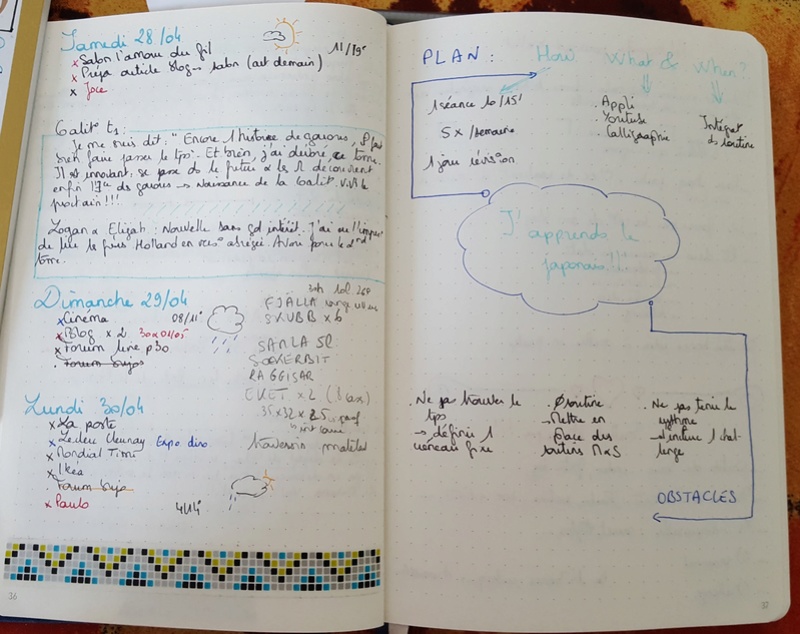 Samedi 28/04
11/19°
x Salon l'amour du fil
x Prépa article Blog → salon (art demain)
x Joce
Galit° t1 :
Je me suis dit : "Encore 1 histoire de gaous, il faut
bien faire passer le tps". Et bien, j'ai dévoré ce tome.
Il est innovant : se passe ds le futur & les
enfin de gaous → Naissance de la Galit°. Vivt le
prochain !!!
Logan & Elijah : Nouvelle sans gd intérêt. J'ai eu l'impr°
de lire les frères Holland en vers° abrégée. A voir pour le 2nd
tome.
Dimanche 29/04
08/11°
x Cinéma
x Blog x 2 30 & 01/05
x Forum livre p30
. Forum Sujo
FJÄLLA
SKUBB x 6
SAMLA 5L
SOCKERBIT
RAGGISAR
EKET x 2
35x32x25
Traversin matelas
Lundi 30/04
x La poste
x Leclerc Clunay Expo dino
x Mondial Timi
x Ikea
. Forum Sujo
x Paulo
4/14°
36
PLAN : How What & When?
1 séance 10/15'
5x/semaine
1 jour révision
. Appli
. Youtube
. Calligraphie
Intégrat°
ds routine
J'apprends le
japonais!!!
. Ne pas trouver le
tps
→ définir 1
créneau fixe
. Ø routine
→ Mettre en
place des
routines M&S
. Ne pas tenir le
rythme
→ inclure 1 chal-
lenge
OBSTACLES
37